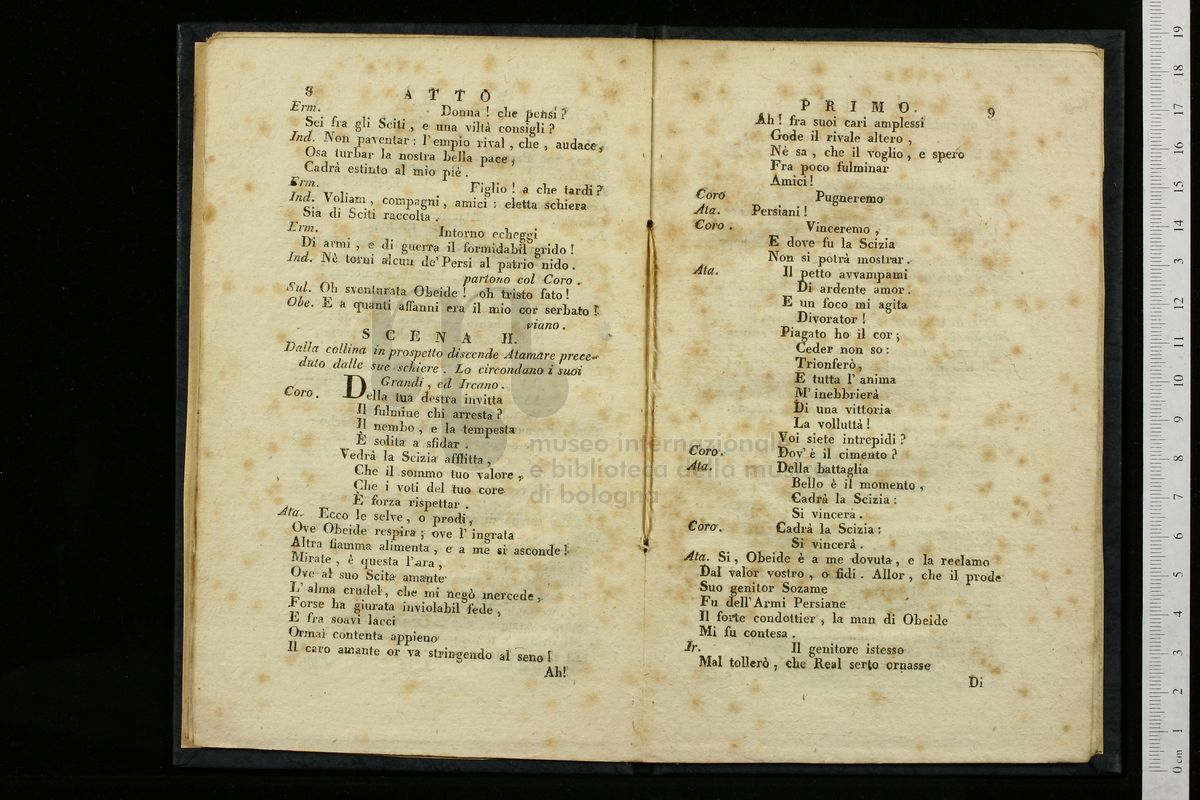 8 ATTO
Erm. Donna ! che pensi ?
Sei fra gli Sciti , e una viltà consigli ?
Ind. Non paventar : l'empio rival , che , audace,
Osa turbar la nostra bella pace,
Cadrà estinto al mio piè .
Erm. Figlio ! a che tardi ?
Ind. Voliam , compagni , amici : eletta schiera
Sia di Sciti raccolta .
Erm. Intorno echeggi
Di armi , e di guerra il formidabil grido !
Ind. Nè torni alcun de' Persi al patrio nido .
partono col Coro .
Sul. Oh sventurata Obeide ! oh tristo fato !
Obe. E a quanti affanni era il mio cor serbato !
viano .
SCENA II.
Dalla collina in prospetto discende Atamare prece-
duto dalle sue schiere . Lo circondano i suoi
Grandi , ed Ircano .
Coro . Della tua destra invitta
Il fulmine chi arresta ?
Il nembo , e la tempesta
È solita a sfidar .
Vedrà la Scizia afflitta ,
Che il sommo tuo valore ,
Che i voti del tuo core
È forza rispettar .
Ata. Ecco le selve, o prodi,
Ove Obeide respira ; ove l'ingrata
Altra fiamma alimenta , e a me si asconde !
Mirate , è questa l'ara ,
Ove al suo Scita amante
L'alma crudel , che mi negò mercede ,
Forse ha giurata inviolabil fede ,
E fra soavi lacci
Ormai contenta appieno
Il caro amante or va stringendo al seno !
Ah!
PRIMO. 9
Ah ! fra suoi cari amplessi
Gode il rivale altero ,
Nè sa , che il voglio , e spero
Fra poco fulminar
Amici !
Coro Pugneremo
Ata. Persiani !
Coro . Vinceremo ,
E dove fu la Scizia
Non si potrà mostrar .
Ata. Il petto avvampami
Di ardente amor .
E un foco mi agita
Divorator !
Piagato ho il cor ;
Ceder non so :
Trionferò,
E tutta l'anima
M'inebbrierà
Di una vittoria
La volluttà !
Voi siete intrepidi ?
Coro . Dov' è il cimento ?
Ata. Della battaglia
Bello è il momento ,
Cadrà la Scizia :
Si vincerà .
Coro. Cadrà la Scizia :
Si vincerà .
Ata. Si , Obeide è a me dovuta , e la reclamo
Dal valor vostro , o fidi . Allor , che il prode
Suo genitor Sozame
Fu dell'Armi Persiane
Il forte condottier , la man di Obeide
Mi fu contesa .
Ir. Il genitore istesso
Mal tollerò , che Real serto ornasse
Di
museo internazionale
e biblioteca della mu
di bologna
0 cm 1 2 3 4 5 6 7 8 9 10 11 12 13 14 15 16 17 18 19